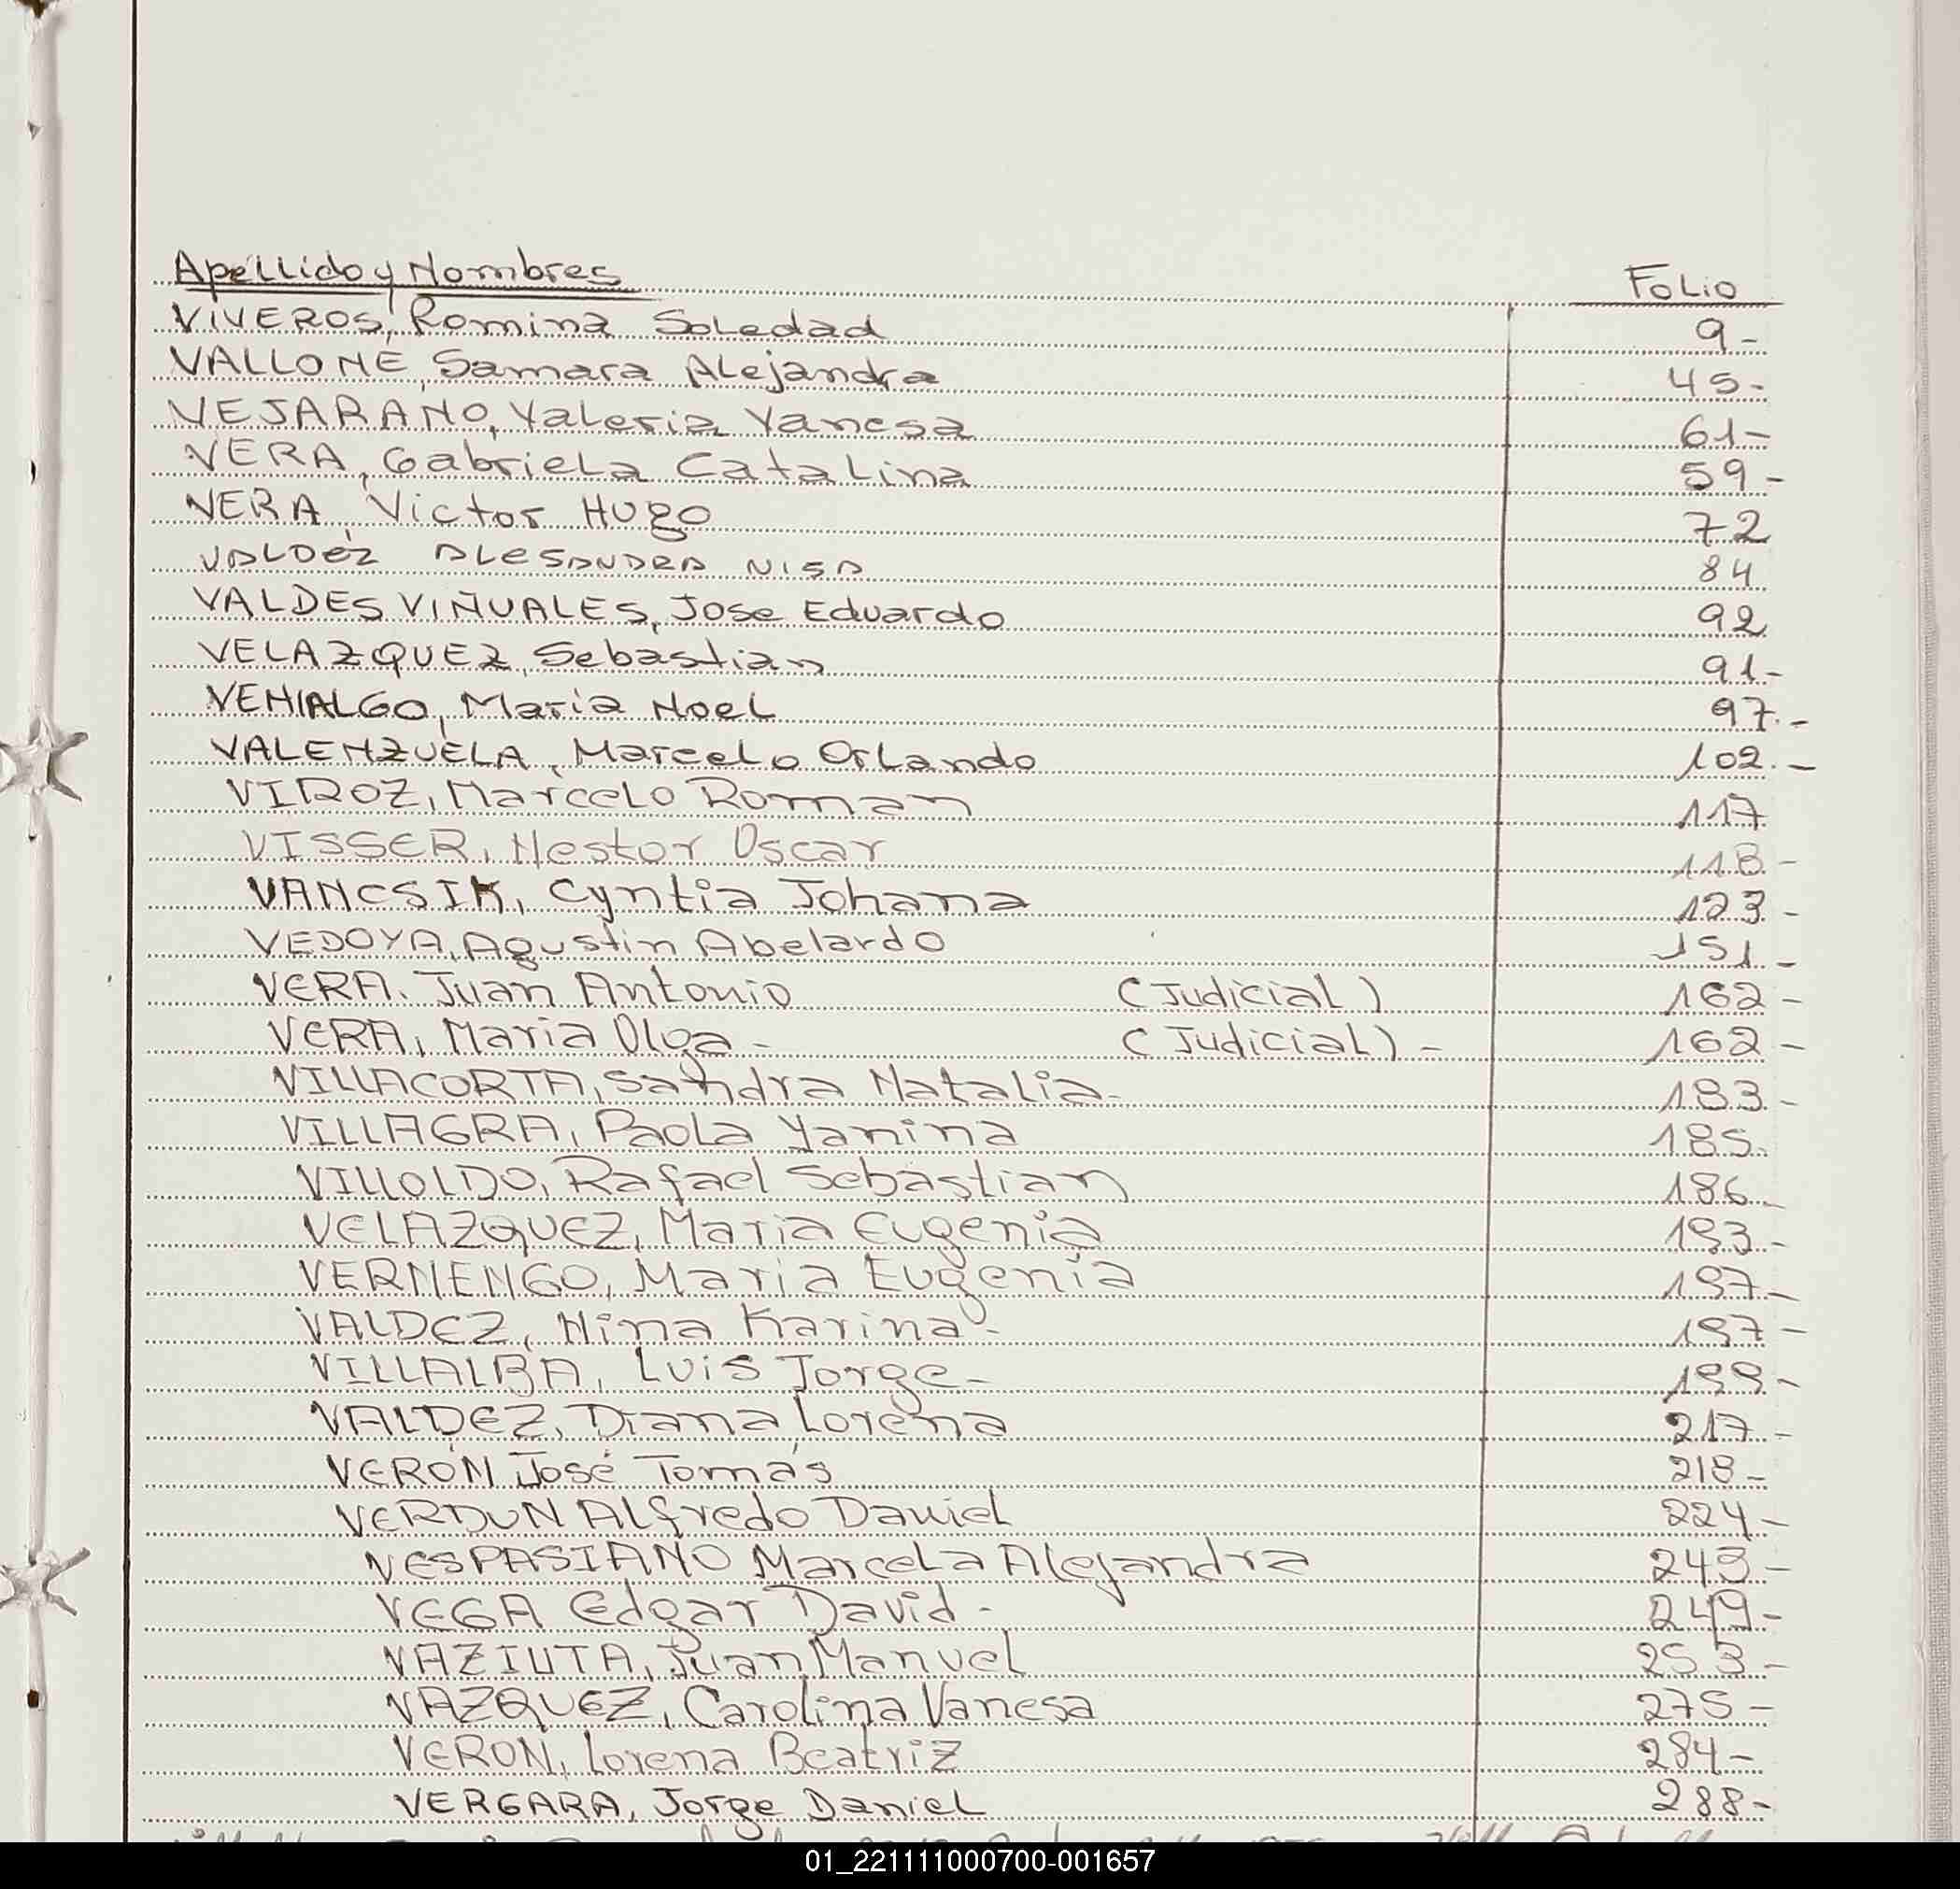 Apellido y Nombres Folio
VIVEROS, Romina Soledad 9-
VALLONE, Samara Alejandra 45-
VEJARANO, Valeria Vanesa 61-
VERA, Gabriela Catalina 59-
VERA, Victor Hugo 72
VALDÉZ ALESANDRA NISA 84
VALDES VIÑUALES, Jose Eduardo 92
VELAZQUEZ, Sebastian 91-
VEHIALGO, Maria Noel 97.-
VALENZUELA, Marcelo Orlando 102.-
VIROZ, Marcelo Roman 117
VISSER, Nestor Oscar 118-
VANCSIK, Cyntia Johana 123-
VEDOYA, Agustin Abelardo 151-
VERA, Juan Antonio (Judicial) 162-
VERA, Maria Olga- (Judicial)- 162-
VILLACORTA, Sandra Natalia- 183-
VILLAGRA, Paola Yanina 185.
VILLOLDO, Rafael Sebastian 186-
VELAZQUEZ, Maria Eugenia 193-
VERNENGO, Maria Eugenia 197-
VALDEZ, Nina Karina- 197-
VILLALBA, Luis Jorge- 199-
VALDEZ, Diana Lorena 217-
VERÓN José Tomás 218-
VERDUN Alfredo Daniel 224-
VESPASIANO Marcela Alejandra 243-
VEGA Edgar David- 249-
VAZIUTA, Juan Manuel 253-
VAZQUEZ, Carolina Vanesa 275-
VERON, Lorena Beatriz 284-
VERGARA, Jorge Daniel 288-
01_221111000700-001657